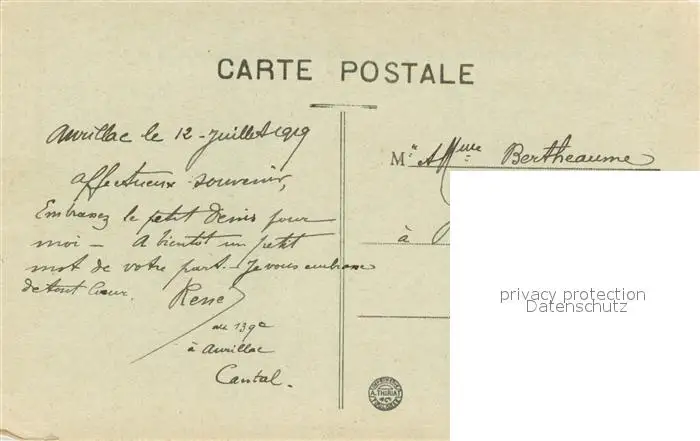 CARTE POSTALE
Aurillac le 12 - Juillet 1919
Affectueux souvenir,
Embrassez le petit Denis pour
moi - A bientôt un petit
mot de votre part. - Je vous embrasse
de tout Cœur. René
au 139e
à Aurillac
Cantal.
M Bertheaume
à
A. THIRIAT
privacy protection
Datenschutz